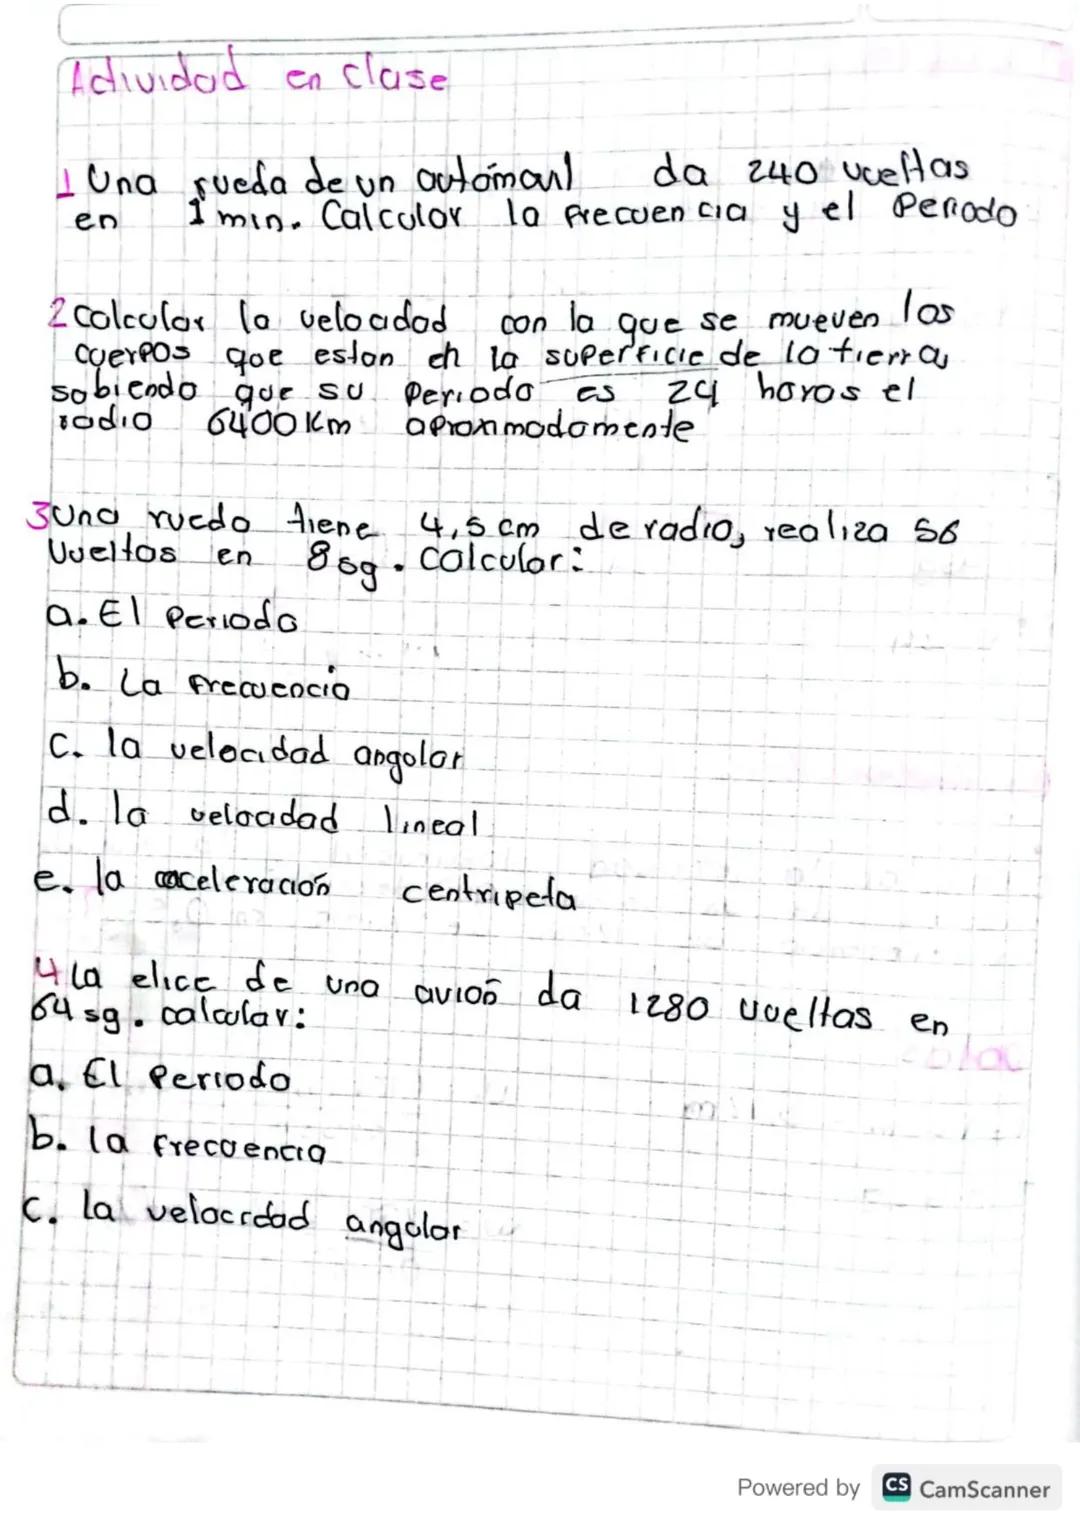 Actividad en clase
1 Una rueda de un automovil da 240 vueltas
en 1 min. Calcular la frecuencia y el Periodo
2 Calcular la velocidad con la que se mueven los
cuerpos que estan en la superficie de la tierra,
sabiendo que su Periodo es 24 horas el
radio 6400 Km aproximadamente
3 Una rueda tiene 4,5 cm de radio, realiza 56
Vueltas en 8 sg. Calcular:
a. El Periodo
b. La frecuencia
c. la velocidad angular
d. la velocidad lineal
e. la aceleración centripeta
4 La elice de una avión da 1280 vueltas en
64 sg. calcular:
a. El Periodo
b. la frecuencia
c. la velocidad angular
Powered by CS CamScanner